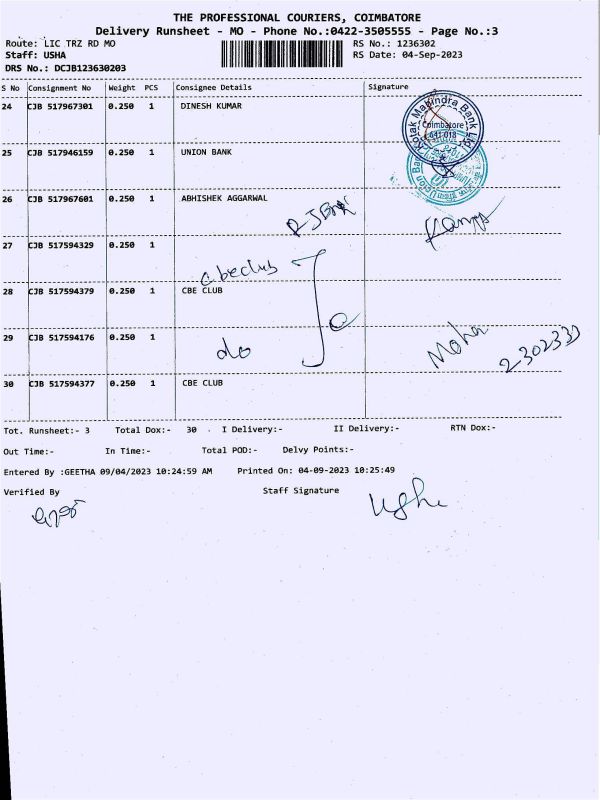 THE PROFESSIONAL COURIERS, COIMBATORE
Delivery Runsheet - MO - Phone No.:0422-3505555 - Page No.:3
Route: LIC TRZ RD MO RS No.: 1236302
Staff: USHA RS Date: 04-Sep-2023
DRS No.: DCJB123630203
S No Consignment No Weight PCS Consignee Details Signature
24 CJB 517967301 0.250 1 DINESH KUMAR
Kotak Mahindra Bank Ltd
Coimbatore
641 018
25 CJB 517946159 0.250 1 UNION BANK
26 CJB 517967601 0.250 1 ABHISHEK AGGARWAL
27 CJB 517594329 0.250 1 cbeclub
28 CJB 517594379 0.250 1 CBE CLUB
29 CJB 517594176 0.250 1 do
2302333
30 CJB 517594377 0.250 1 CBE CLUB
Tot. Runsheet:- 3 Total Dox:- 30 . I Delivery:- II Delivery:- RTN Dox:-
Out Time:- In Time:- Total POD:- Delvy Points:-
Entered By :GEETHA 09/04/2023 10:24:59 AM Printed On: 04-09-2023 10:25:49
Verified By Staff Signature
Usha